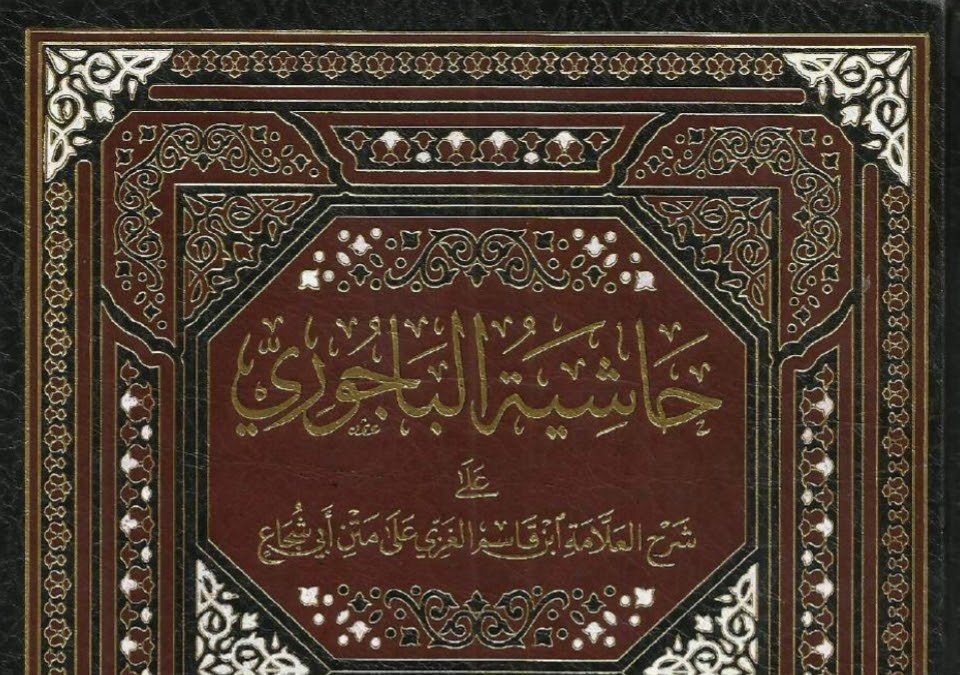 حَاشِيَةُ البَاجُوْرِيِّ
عَلَى
شَرْح العَلَّامَة ابْن قَاسِم الغَزّي عَلَى مَتْن أَبي شُجَاع